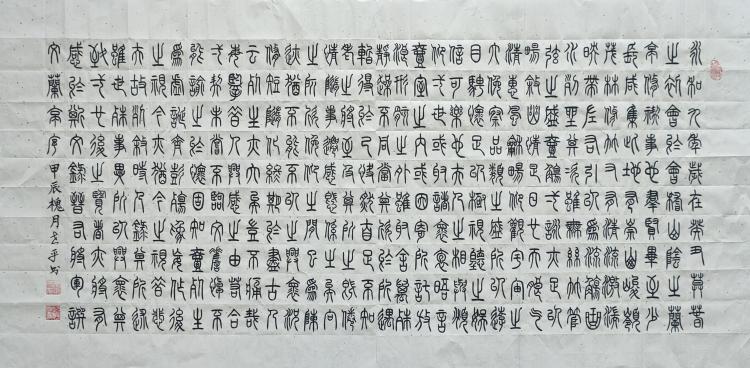 永和九年歲在癸丑莫春
之初會于會稽山陰之蘭
亭修禊事也群賢畢至少
長咸集此地有崇山峻嶺
茂林修竹又有清流激湍
映帶左右引以為流觴曲
水列坐其次雖無絲竹管
弦之盛一觴一詠亦足以
暢敘幽情是日也天朗氣
清惠風和暢仰觀宇宙之
大俯察品類之盛所以遊
目騁懷足以極視聽之娛
信可樂也夫人之相與俯
仰一世或取諸懷抱晤言
一室之內或因寄所託放
浪形骸之外雖趣舍萬殊
靜躁不同當其欣於所遇
暫得於己快然自足不知
老之將至及其所之既倦
情隨事遷感慨係之矣向
之所欣俛仰之間以為陳
迹猶不能不以之興懷況
修短隨化終期於盡古人
云死生亦大矣豈不痛哉
每覽昔人興感之由若合
一契未嘗不臨文嗟悼不
能喻之於懷固知一死生
為虛誕齊彭殤為妄作後
之視今亦猶今之視昔悲
夫故列敘時人錄其所述
雖世殊事異所以興懷其
致一也後之覽者亦將有
感於斯文錄晉右將軍譔
文蘭亭序 甲辰槐月玄平書